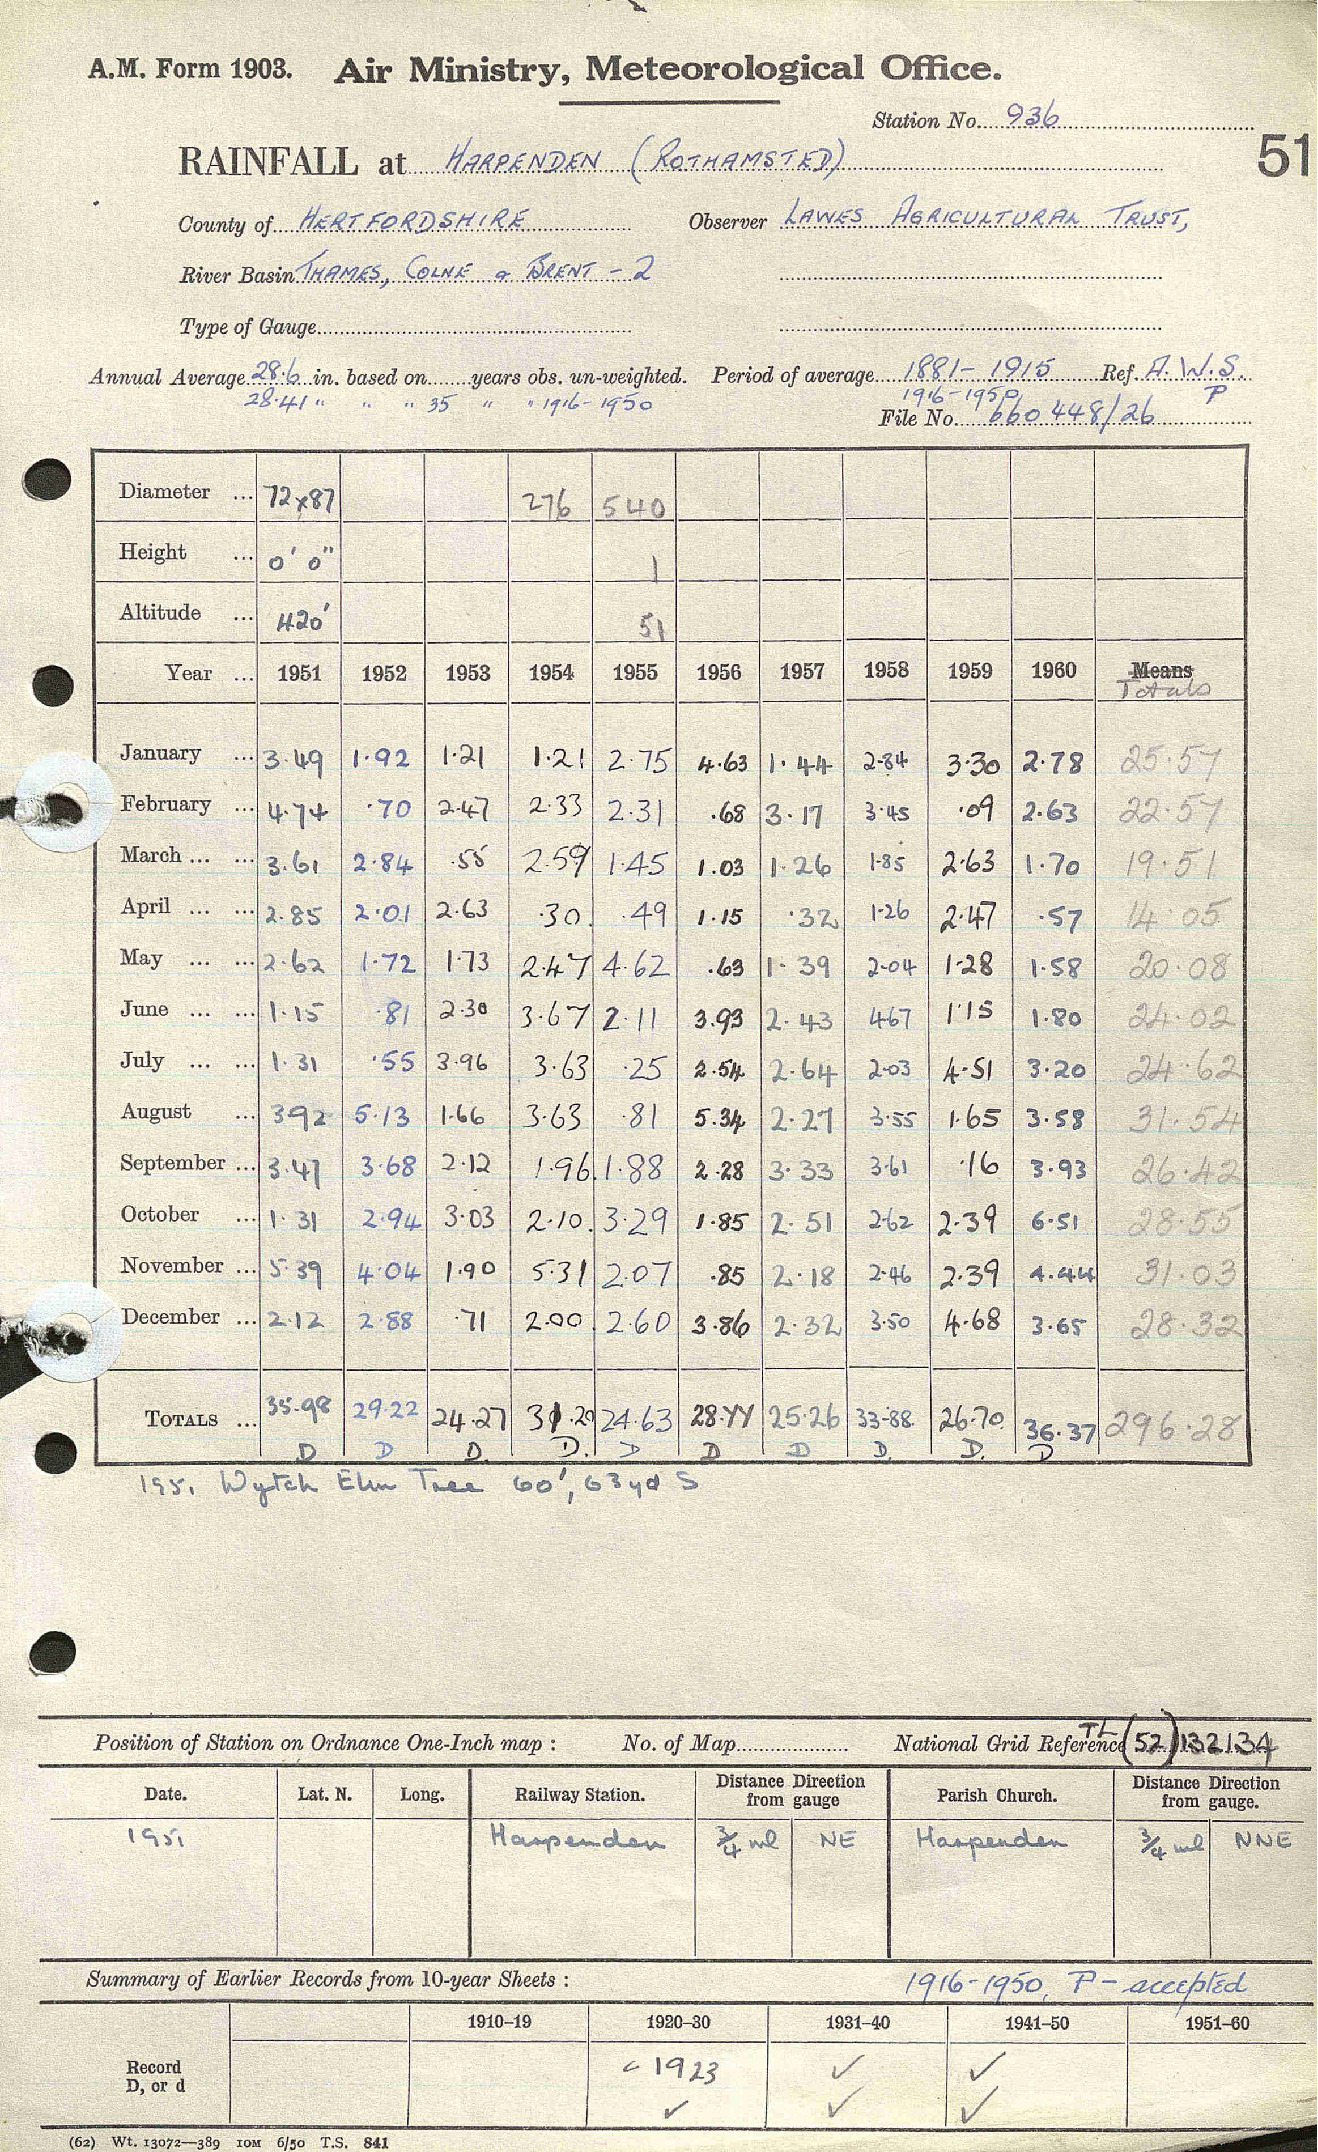 A.M. Form 1903. Air Ministry, Meteorological Office.
Station No. 936
51
RAINFALL at HARPENDEN (ROTHAMSTED)
County of HERTFORDSHIRE Observer LAWES AGRICULTURAL TRUST,
River Basin THAMES, COLNE & BRENT - 2
Type of Gauge
Annual Average 28.6 in. based on years obs. un-weighted. Period of average 1881-1915 Ref. A.W.S.
28.41 " " " 35 " " 1916-1950 1916-1950 P
File No. 660448/26
Diameter ... 72x87 276 540
Height ... 0' 0" 1
Altitude ... 420' 51
Year ... 1951 1952 1953 1954 1955 1956 1957 1958 1959 1960 Means
Totals
January ... 3.49 1.92 1.21 1.21 2.75 4.63 1.44 2.84 3.30 2.78 25.57
February ... 4.74 .70 2.47 2.33 2.31 .68 3.17 3.45 .09 2.63 22.57
March ... ... 3.61 2.84 .55 2.59 1.45 1.03 1.26 1.85 2.63 1.70 19.51
April ... ... 2.85 2.01 2.63 .30 .49 1.15 .32 1.26 2.47 .57 14.05
May ... ... 2.62 1.72 1.73 2.47 4.62 .63 1.39 2.04 1.28 1.58 20.08
June ... ... 1.15 .81 2.30 3.67 2.11 3.93 2.43 4.67 1.15 1.80 24.02
July ... ... 1.31 .55 3.96 3.63 .25 2.54 2.64 2.03 4.51 3.20 24.62
August ... 3.92 5.13 1.66 3.63 .81 5.34 2.27 3.55 1.65 3.58 31.54
September ... 3.47 3.68 2.12 1.96 1.88 2.28 3.33 3.61 .16 3.93 26.42
October ... 1.31 2.94 3.03 2.10 3.29 1.85 2.51 2.62 2.39 6.51 28.55
November ... 5.39 4.04 1.90 5.31 2.07 .85 2.18 2.46 2.39 4.44 31.03
December ... 2.12 2.88 .71 2.00 2.60 3.86 2.32 3.50 4.68 3.65 28.32
TOTALS ... 35.98 29.22 24.27 31.20 24.63 28.77 25.26 33.88 26.70 36.37 296.28
D D D. D. D D D D. D. D
1951 Wytch Elm Tree 60', 63yd S
Position of Station on Ordnance One-Inch map : No. of Map National Grid Reference TL (52) 132134
Date. Lat. N. Long. Railway Station. Distance Direction from gauge Parish Church. Distance Direction from gauge.
1951 Harpenden 3/4 ml NE Harpenden 3/4 ml NNE
Summary of Earlier Records from 10-year Sheets : 1916-1950, P - accepted
1910–19 1920–30 1931–40 1941–50 1951–60
Record 1923 ✓ ✓
D, or d ✓ ✓ ✓
(62) Wt. 13072—389 10M 6/50 T.S. 841